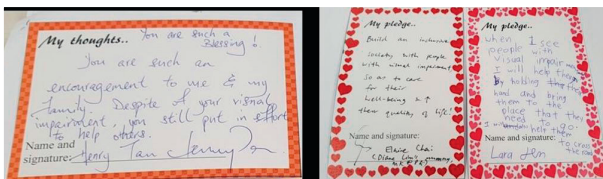 My thoughts..
You are such a
Blessing!
You are such an
encouragement to me & my
family. Despite of your visual
impairment, you still put in effort
to help others.
Name and
signature: Henry Tan
My pledge..
Build an inclusive
society with people
with visual impairment
so as to care
for their
well-being & ↑
their quality of life!
Name and signature:
Elaine Chai
My pledge..
when I see
people with
visual impairment
I will help them
by holding their
hand and bring
them to the
place that they
need to go.
I help them
to cross
the road
Name and
signature:
Lara Jen